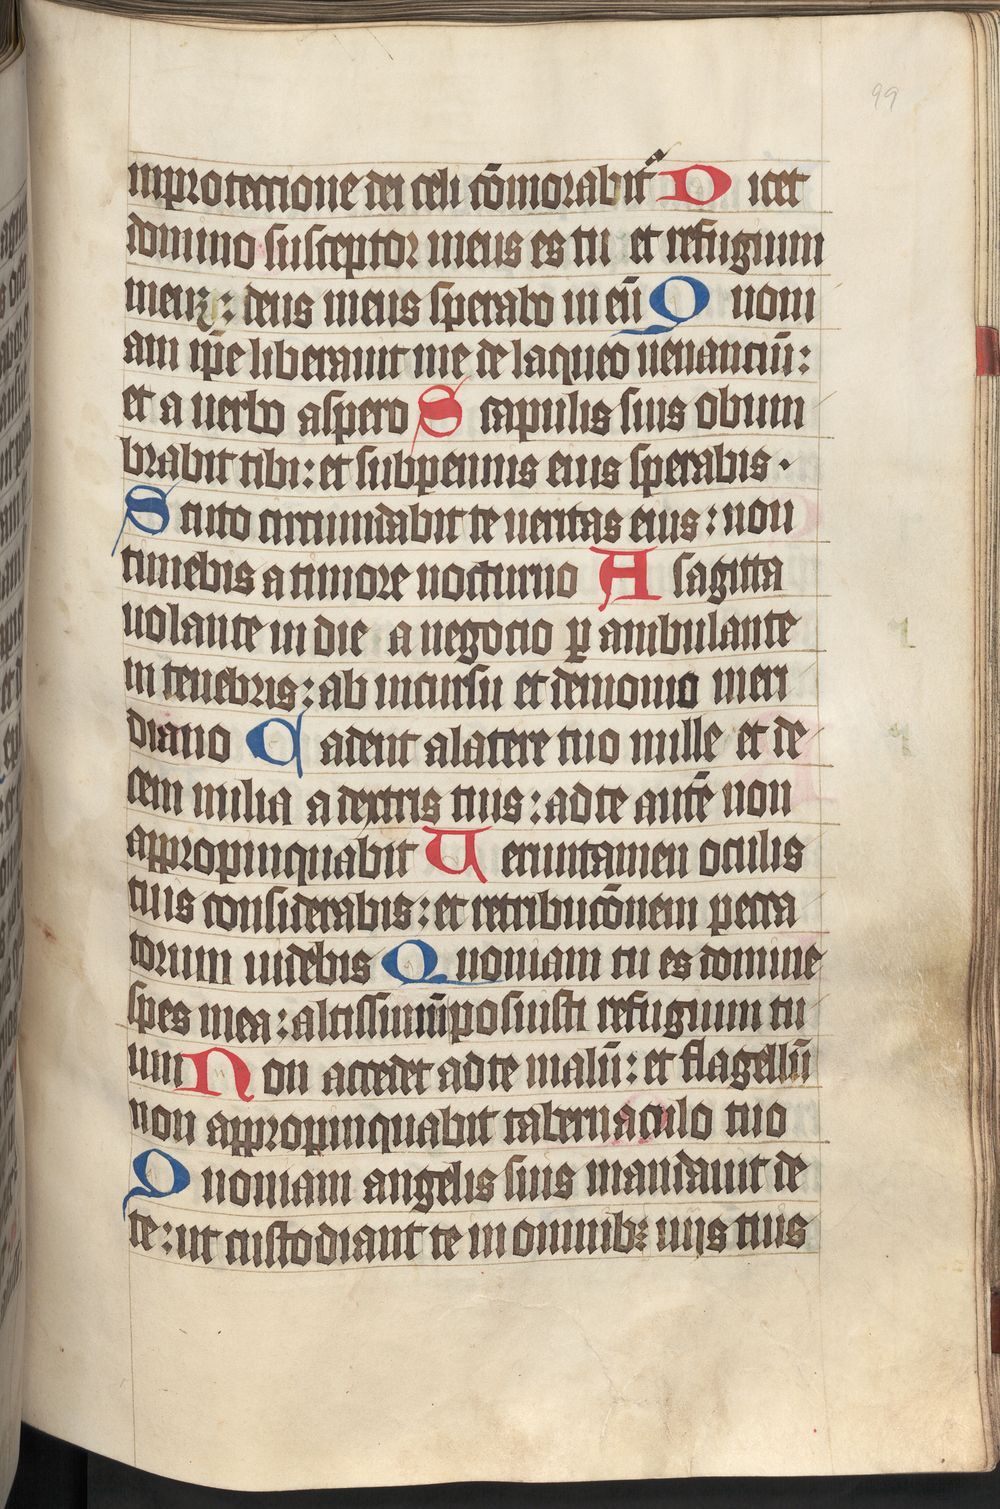 99
inprotectione dei celi cōmorabit᷑ Dicet
domino susceptor meus es tu et refugium
meuꝫ: deus meus sperabo in eū Quoni
am ip̄e liberauit me de laqueo uenanciū:
et a uerbo aspero Scapulis suis obum
brabit tibi: et subpennis eius sperabis.
Scuto circumdabit te ueritas eius: non
timebis a timore nocturno A sagitta
uolante in die a negocio ꝑ ambulante
in tenebris: ab incursu et demonio meri
diano Cadent alatere tuo mille et de
cem milia a dextris tuis: ad te autē non
appropinquabit Ueruntamen oculis
tuis considerabis: et retribucōnem pecca
torum uidebis Quoniam tu es domine
spes mea: altissimūposuisti refugium tu
um Non accedet ad te malū: et flagellū
non appropinquabit tabernaculo tuo
Quoniam angelis suis mandauit de
te: ut custodiant te in omnibꝫ uijs tuis